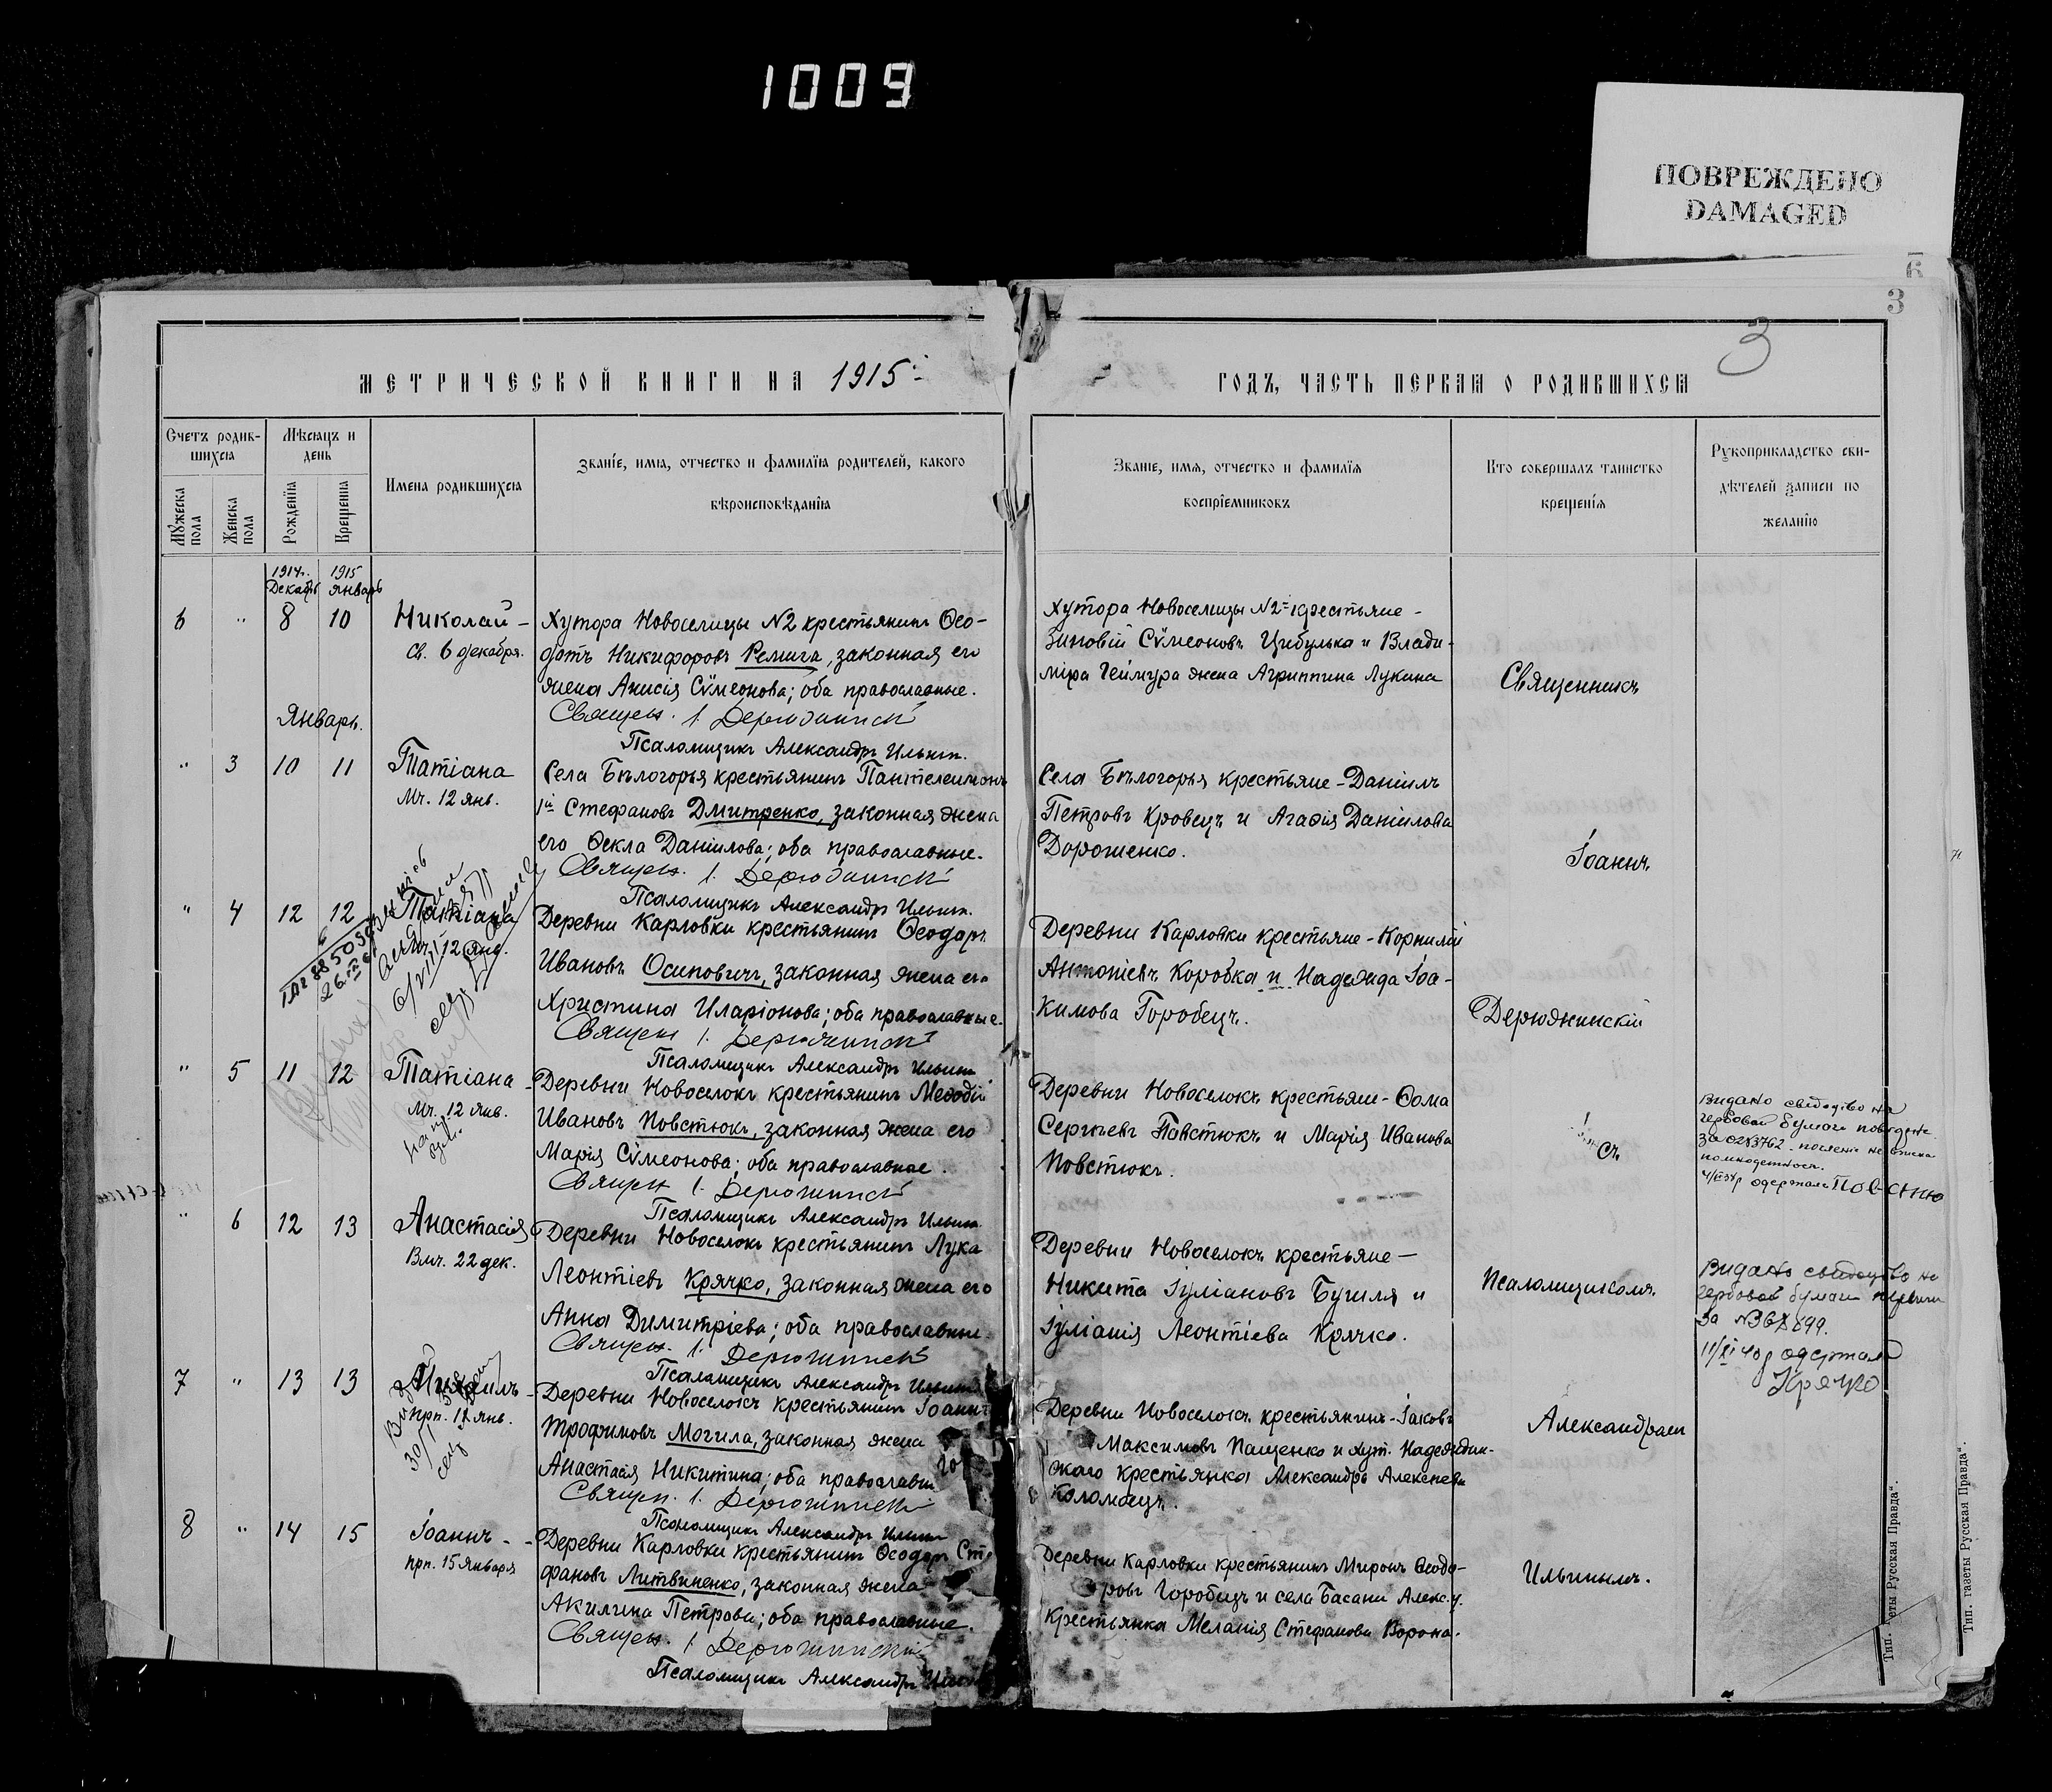 1009
ПОВРЕЖДЕНО
DAMAGED
3
3
МЕТРИЧЕСКОЙ КНИГИ НА 1915
ГОДЪ, ЧАСТЬ ПЕРВАЯ О РОДИВШИХСЯ
Счетъ родив-
шихся
Мѣсяцъ и
день
Имена родившихся
Званіе, имя, отчество и фамилія родителей, какого
вѣроисповѣданія
Званіе, имя, отчество и фамилія
воспріемниковъ
Кто совершалъ таинство
крещенія
Рукоприкладство сви-
дѣтелей записи по
желанію
Мужеска
пола
Женска
пола
Рожденія
Крещенія
1914 г. 1915
Декабрь Январь
6 " 8 10 Николай -
Св. 6 декабря.
Хутора Новоселицы N2 крестьянинъ Ѳео-
дотъ Никифоровъ Ремига, законная его
жена Анисія Сѵмеонова; оба православные.
Священ. І. Дерюжинскій
Псаломщикъ Александръ Ильинъ.
Хутора Новоселицы N2 крестьяне -
Зиновій Сѵмеоновъ Цибулька и Влади-
міра Геймура жена Агриппина Лукина
Священникъ
Январь.
" 3 10 11 Татіана
Мч. 12 янв.
Села Бѣлогорья крестьянинъ Пантелеимонъ
1й Стефановъ Дмитренко, законная жена
его Ѳекла Даніилова; оба православные.
Священ. І. Дерюжинскій
Псаломщикъ Александръ Ильинъ.
Села Бѣлогорья крестьяне - Даніилъ
Петровъ Кровецъ и Агаѳія Даніилова
Дорошенко.
Іоаннъ
" 4 12 12 Татіана
Мч. 12 янв.
Деревни Карловки крестьянинъ Ѳеодоръ
Ивановъ Осиповичъ, законная жена его
Христина Иларіонова; оба православные.
Священ. І. Дерюжинскій
Псаломщикъ Александръ Ильинъ
Деревни Карловки крестьяне - Корнилій
Антоніевъ Коробка и Надежда Іоа-
кимова Горобецъ.
Дерюжинскій
" 5 11 12 Татіана -
Мч. 12 янв.
Деревни Новоселокъ крестьянинъ Меѳодій
Ивановъ Повстюкъ, законная жена его
Марія Сѵмеонова; оба православные.
Священ. І. Дерюжинскій
Псаломщикъ Александръ Ильинъ.
Деревни Новоселокъ крестьяне - Ѳома
Сергѣевъ Павстюкъ и Марія Иванова
Повстюкъ.
съ
Видано свидоцтво на
гербовой бумаги
за 0283762
" 6 12 13 Анастасія
Вмч. 22 дек.
Деревни Новоселокъ крестьянинъ Лука
Леонтіевъ Крячко, законная жена его
Анна Димитріева; оба православные.
Священ. І. Дерюжинскій
Псаломщикъ Александръ Ильинъ
Деревни Новоселокъ крестьяне -
Никита Іуліановъ Бугиля и
Іуліанія Леонтіева Крячко.
Псаломщикомъ
Видано свидоцтво на
гербовой бумаги
одержала
Крячко
7 " 13 13 Михаилъ -
Прп. 11 янв.
Деревни Новоселокъ крестьянинъ Іоаннъ
Трофимовъ Могила, законная жена
Анастасія Никитина; оба православн
Священ. І. Дерюжинскій
Псаломщикъ Александръ Ильинъ
Деревни Новоселокъ крестьянинъ - Іаковъ
Максимовъ Пащенко и хут. Надеждин-
скаго крестьянка Александра Алексѣева
Коломоецъ.
Александромъ
8 " 14 15 Іоаннъ -
прп. 15 Января
Деревни Карловки крестьянинъ Ѳеодоръ Сте
фановъ Литвиненко, законная жена
Акилина Петрова; оба православные.
Священ. І. Дерюжинскій
Псаломщикъ Александръ
Деревни Карловки крестьянинъ Миронъ Ѳеодо-
ровъ Горобецъ и села Басани Алекс. у.
крестьянка Меланія Стефанова Ворона.
Ильинымъ.
Тип. газеты Русская Правда".